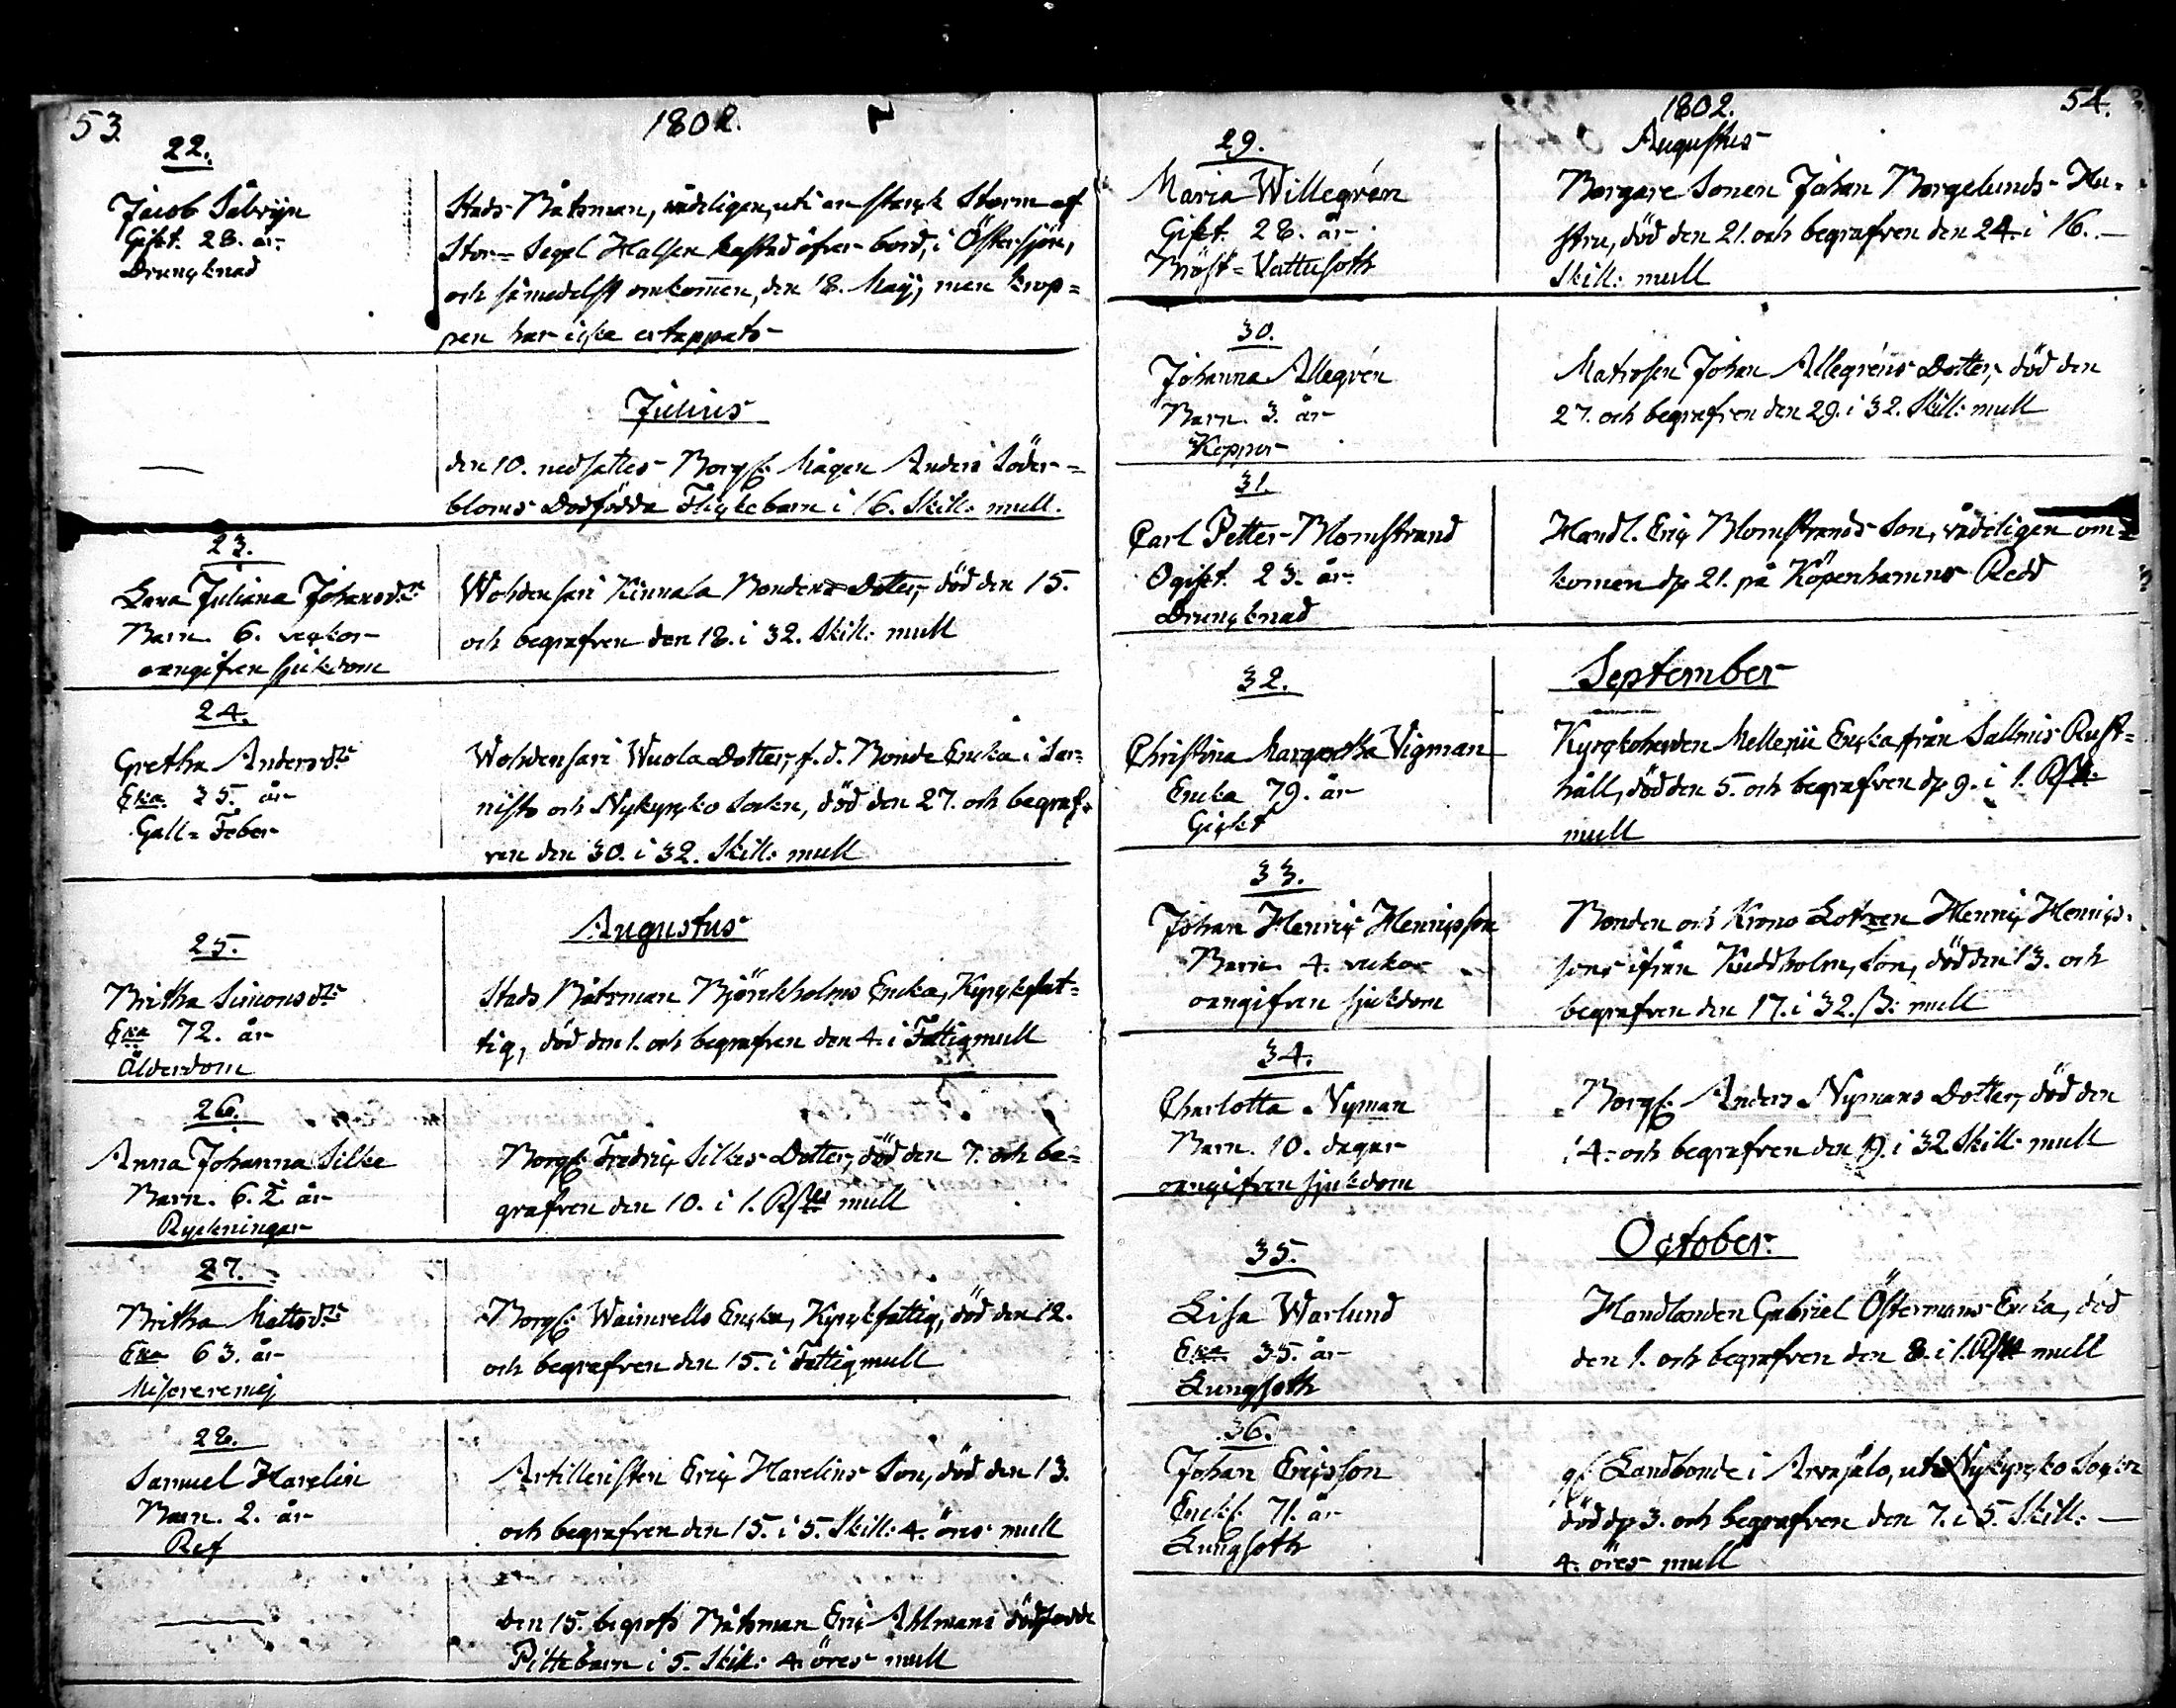 53.
1802.
22.
Jacob Sabrijn
Gift. 28. år
Drunçknad
Stads Båtsman, vådeligen, uti en starçk Storm af
Stor=Segel Halsen kastad öfver bord, i Östersjön,
och såmedelst omkommen, den 18. Maij, men krop=
pen har icke ertappats
Julius
den 10. nedsattes Borgs: Mågen Anders Söder=
bloms Dödfödda Fliçkebarn i 16. Skill: mull.
23.
Lena Juliana Johansdtr
Barn. 6. veçkor
oangifven sjukdom
Wohdensari Kinnala Bondens Dotter, död den 15.
och begrafven den 18. i 32. Skill: mull
24.
Gretha Andersdtr
Eka 35. år
Gall=Feber
Wohdensari Wuola Dotter, f. d. Bonde Encka i
och Nykyrko Soken, död den 27. och begraf=
ven den 30. i 32. Skill: mull
Augustus
25.
Britha Simonsdtr
Eka 72. år
Ålderdom
Stads Båtsman Björckholms Encka, Kyrckfat=
tig, död den 1. och begrafven den 4. i Fattigmull
26.
Anna Johanna Silke
Barn. 6. år
Ryckningar
Borgs: Fredriç Silkes Dotter, död den 7. och be=
grafven den 10. i 1. Rds mull
27.
Britha Mattsdtr
Eka 63. år
Misereremej
Borgs: Wainrells Ençka, Kyrckfattig, död den 12.
och begrafven den 15. i Fattigmull
28.
Samuel Harelin
Barn. 2. år
Ref
Artilleristen Eriç Harelins Son, död den 13.
och begrafven den 15. i 5. Skill: 4. öres mull
den 15. begrofs Båtsman Eriç Ahlmans dödfödde
Piltebarn i 5. Skill: 4. öres mull
1802.
54.
Augustus
29.
Maria Willegrén
Gift. 28. år
Bröst=Vattusoth
Borgare Sonen Johan Borgelunds Hu=
stru, död den 21. och begrafven den 24. i 16.
Skill: mull
30.
Johanna Allegrén
Barn. 3. år
Koppor
Matrosen Johan Allegréns Dotter, död den
27. och begrafven den 29. i 32. Skill: mull
31.
Carl Petter Blomstrand
Ogift. 23. år
Drunçknad
Handl. Eriç Blomstrands Son, vådeligen om=
komen d. 21. på Köpenhamns Redd
September
32.
Christina Margretha Vigman
Encka 79. år
Giçkt
Kyrçkoherden Mellerii Ençka från Sallmis Rust=
håll, död den 5. och begrafven d. 9. i 1. Rds
mull
33.
Johan Henriç Henriçsson
Barn. 4. veckor
oangifven sjukdom
Bonden och Krono Lotsen Henriç Henriçs=
sons ifrån Kuddholm, Son, död den 13. och
begrafven den 17. i 32. ß: mull
34.
Charlotta Nyman
Barn. 10. dagar
oangifven sjukdom
Borgs: Anders Nymans Dotter, död den
14. och begrafven den 19. i 32 Skill: mull
October.
35.
Lisa Warlund
Eka 35. år
Lungsoth
Handlanden Gabriel Östermans Encka, död
den 1. och begrafven den 8. i 1. Rds mull
36.
Johan Ericsson
Enckl. 71. år
Lungsoth
Landbonde i Arvasalo, uti Nykyrcko Soçken
död d. 3. och begrafven den 7. i 5. Skill:
4. öres mull